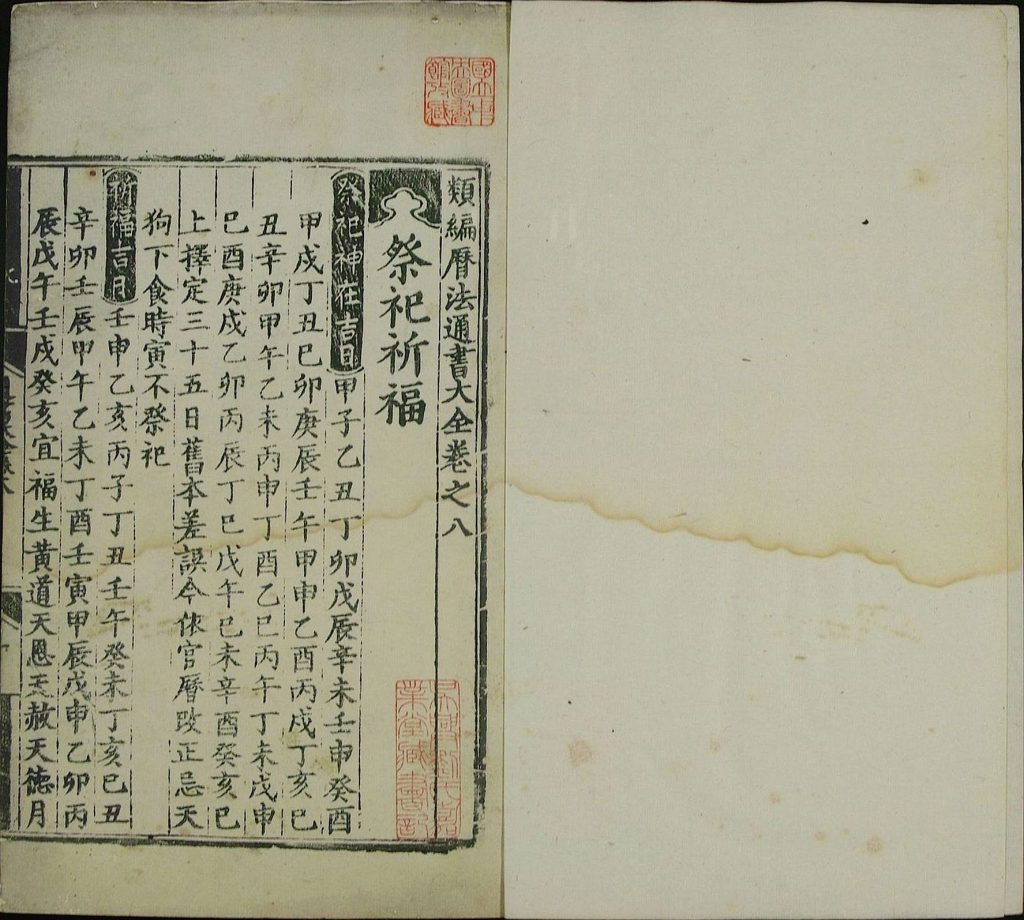 類編曆法通書大全卷之八
祭祀祈福
祭祀神在吉日甲子乙丑丁卯戊辰辛未壬申癸酉
甲戌丁丑巳卯庚辰壬午甲申乙酉丙戌丁亥巳
丑辛卯甲午乙未丙申丁酉乙巳丙午丁未戊申
巳酉庚戌乙卯丙辰丁巳戊午巳未辛酉癸亥巳
上擇定三十五日舊本差誤今依官曆改正忌天
狗下食時寅不祭祀
祈福吉日壬申乙亥丙子丁丑壬午癸未丁亥巳丑
辛卯壬辰甲午乙未丁酉壬寅甲辰戊申乙卯丙
辰戊午壬戌癸亥宜福生黃道天恩天赦天德月
國立中央圖書館收藏
吳興劉氏嘉業堂藏書記